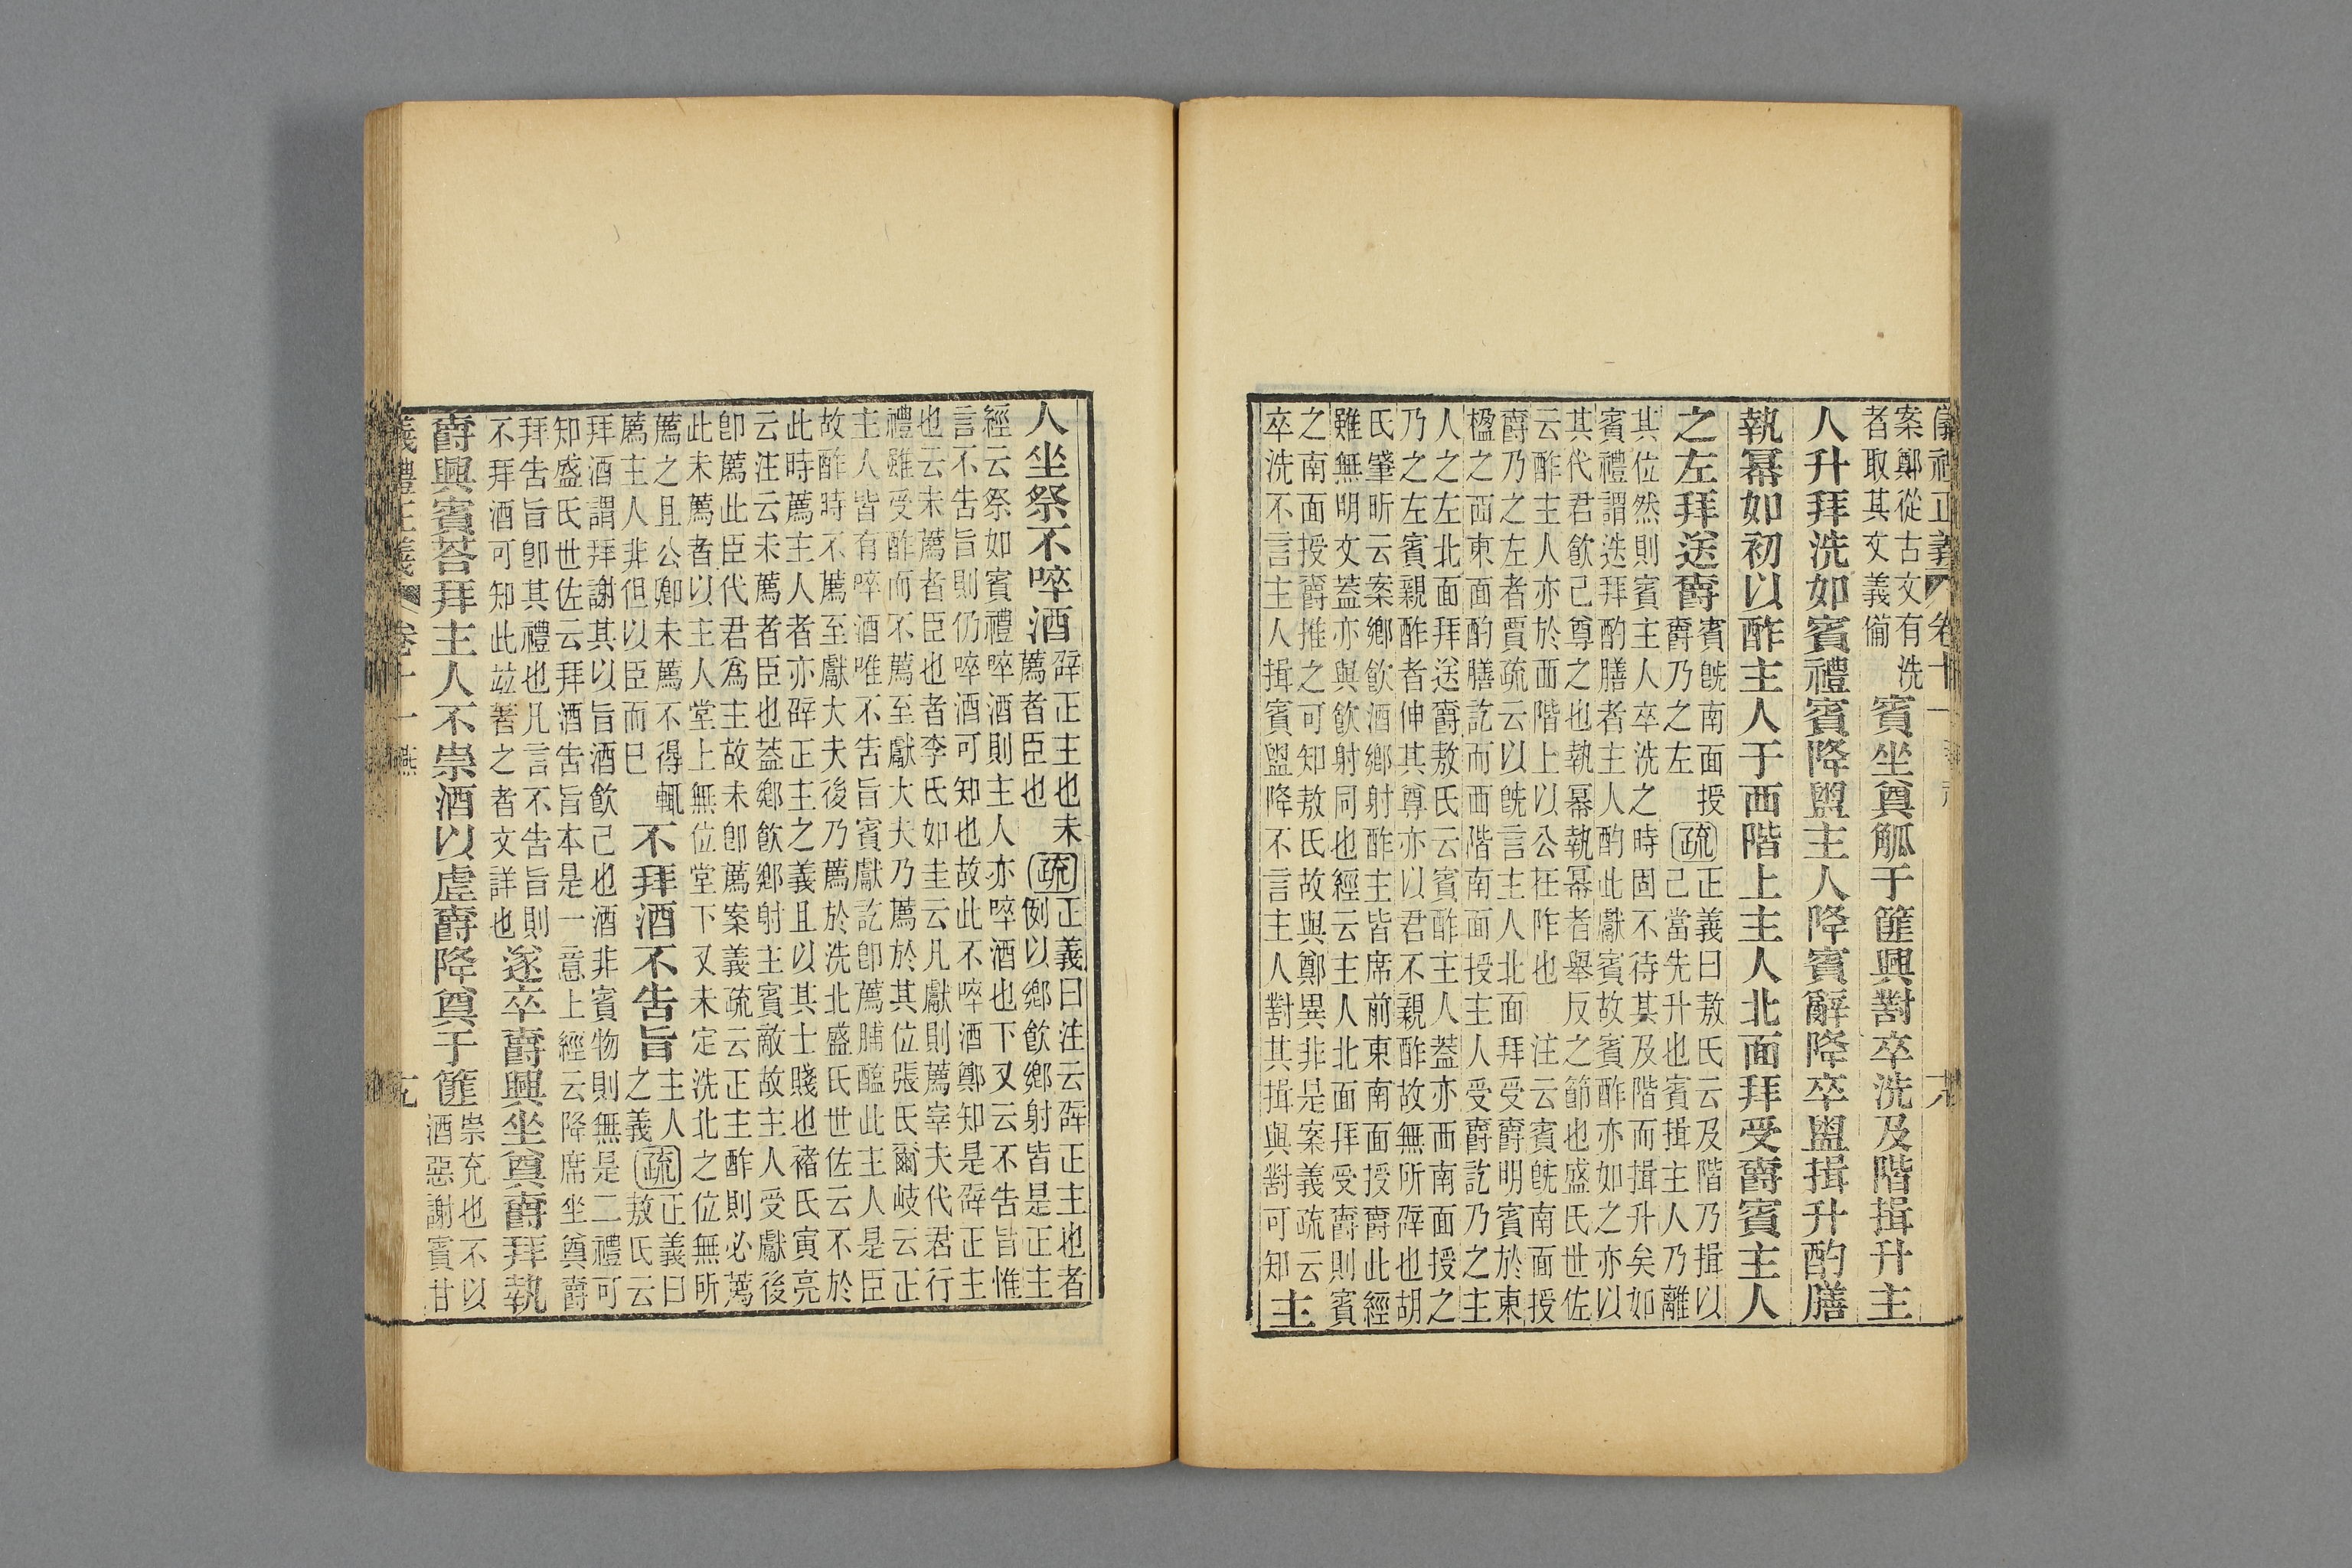 儀禮正義 卷十一
案鄭從古文有洗
者取其文義備
賓坐奠觚于篚興對卒洗及階揖升主
人升拜洗如賓禮賓降盥主人降賓辭降卒盥揖升酌膳
執冪如初以酢主人于西階上主人北面拜受爵賓主人
之左拜送爵
賓旣南面授
爵乃之左
疏
正義曰敖氏云及階乃揖以
己當先升也賓揖主人乃離
其位然則賓主人卒洗之時固不待其及階而揖升矣如
賓禮謂迭拜酌膳者主人酌此獻賓故賓酢亦如之亦以
其代君飮己尊之也執冪執冪者舉反之節也盛氏世佐
云酢主人亦於西階上以公在阼也 注云賓旣南面授
爵乃之左者賈疏云以旣言主人北面拜受爵明賓於東
楹之西東面酌膳訖而西階南面授主人受爵訖乃之主
人之左北面拜送爵敖氏云賓酢主人蓋亦西南面授之
乃之左賓親酢者伸其尊亦以君不親酢故無所辟也胡
氏肇昕云案鄉飮酒鄉射酢主皆席前東南面授爵此經
雖無明文蓋亦與飮射同也經云主人北面拜受爵則賓
之南面授爵推之可知敖氏故與鄭異非是案義疏云
卒洗不言主人揖賓盥降不言主人對其揖與對可知
主
人坐祭不啐酒
辟正主也未
薦者臣也
疏
正義曰注云辟正主也者
例以鄉飮鄉射皆是正主
經云祭如賓禮啐酒則主人亦啐酒也下又云不告旨惟
言不告旨則仍啐酒可知也故此不啐酒鄭知是辟正主
也云未薦者臣也者李氏如圭云凡獻則薦宰夫代君行
禮雖受酢而不薦至獻大夫乃薦於其位張氏爾岐云正
主人皆有啐酒唯不告旨賓獻訖卽薦脯醢此主人是臣
故酢時不薦至獻大夫後乃薦於洗北盛氏世佐云不於
此時薦主人者亦辟正主之義且以其士賤也褚氏寅亮
云注云未薦者臣也蓋鄉飮鄉射主賓敵故主人受獻後
卽薦此臣代君爲主故未卽薦案義疏云正主酢則必薦
此未薦者以主人堂上無位堂下又未定洗北之位無所
薦之且公卿未薦不得輒
薦主人非但以臣而已
不拜酒不告旨
主人
之義
疏
正義曰
敖氏云
拜酒謂拜謝其以旨酒飮己也酒非賓物則無是二禮可
知盛氏世佐云拜酒告旨本是一意上經云降席坐奠爵
拜告旨卽其禮也凡言不告旨則
不拜酒可知此竝著之者文詳也
遂卒爵興坐奠爵拜執
爵興賓荅拜主人不崇酒以虛爵降奠于篚
崇充也不以
酒惡謝賓甘
儀禮正義 卷十一 燕